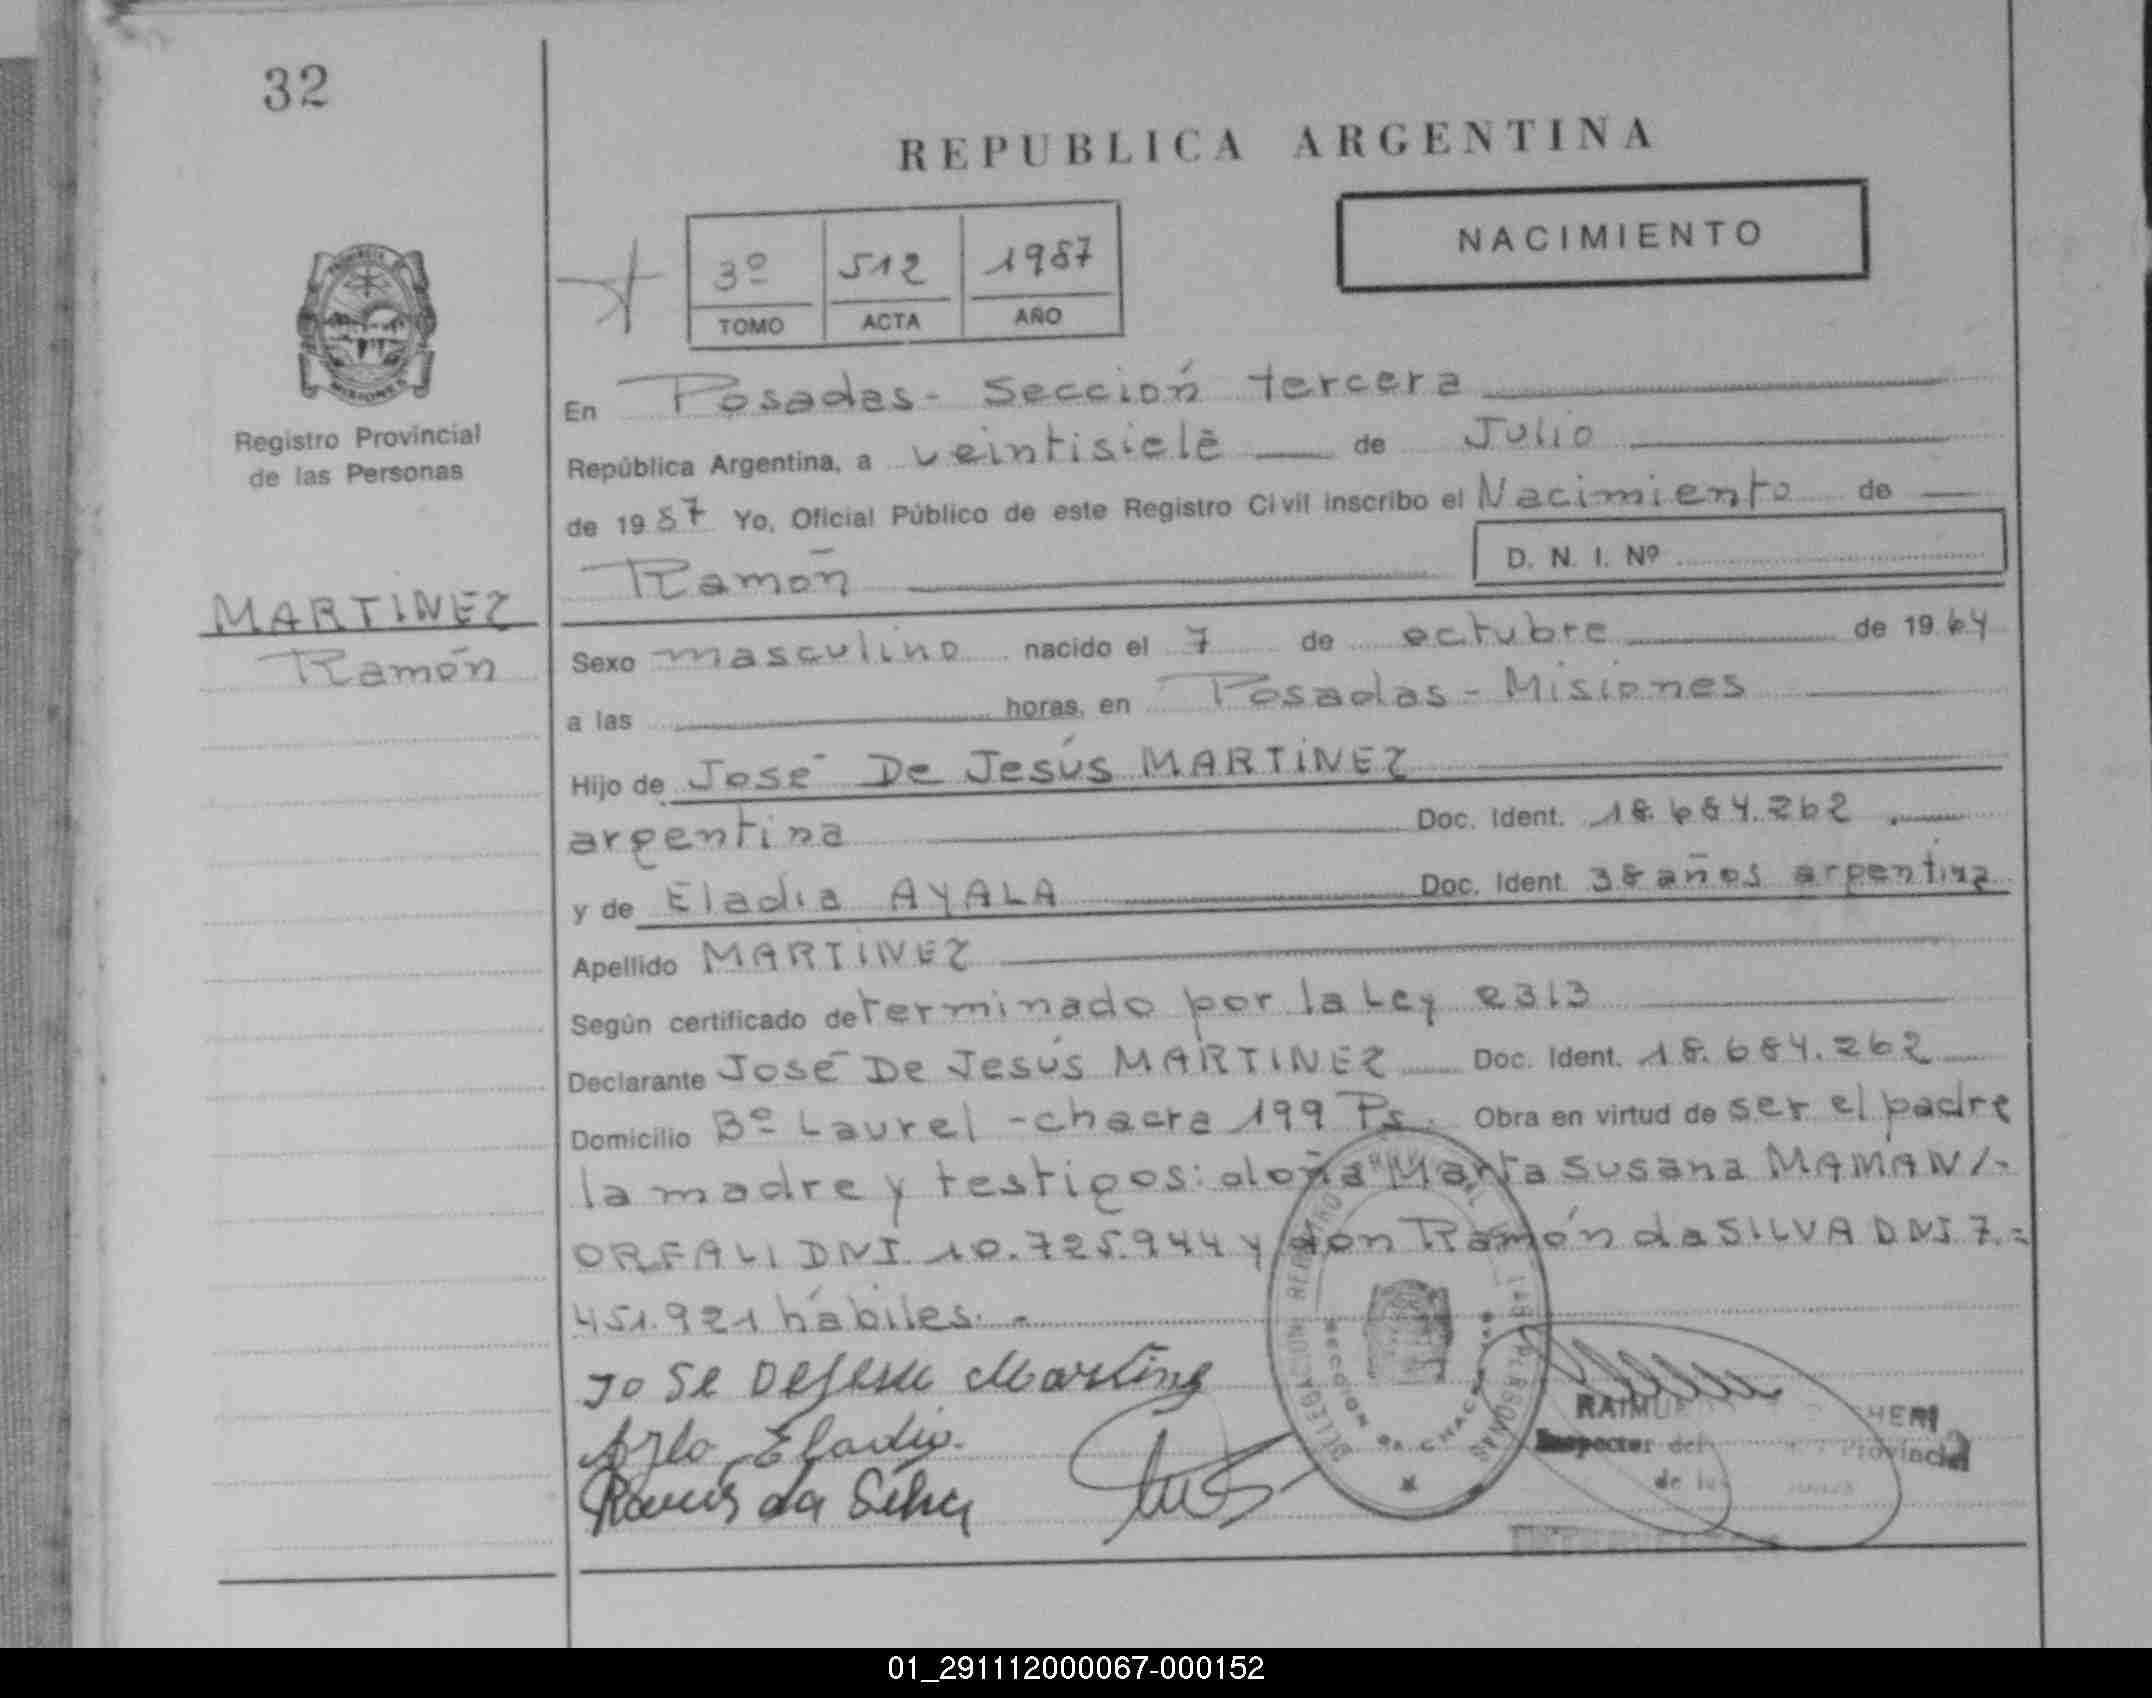 32
REPUBLICA ARGENTINA
NACIMIENTO
3º 512 1987
TOMO ACTA AÑO
Registro Provincial
de las Personas
MARTINEZ
Ramón
En Posadas - Sección tercera
República Argentina, a veintisiete de Julio
de 1987 Yo, Oficial Público de este Registro Civil inscribo el Nacimiento de
Ramón D. N. I. Nº
Sexo masculino nacido el 7 de octubre de 1964
a las horas, en Posadas - Misiones
Hijo de José De Jesús MARTINEZ
argentina Doc. Ident. 18.684.262
y de Eladia AYALA Doc. Ident. 38 años argentina
Apellido MARTINEZ
Según certificado determinado por la Ley 2313
Declarante José De Jesús MARTINEZ Doc. Ident. 18.684.262
Domicilio Bº Laurel - chacra 199 Ps. Obra en virtud de ser el padre
la madre y testigos: doña Marta Susana MAMANI-
ORFALI DNI. 10.725.944 y don Ramón da SILVA DNI 7.=
451.921 hábiles.-
Jose DeJesu Martine
Eladia
Ramon da Silva
DELEGACION REGISTRO PROVINCIAL DE LAS PERSONAS
SECCION CHACRA
Inspector del Provincial
de las
01_291112000067-000152